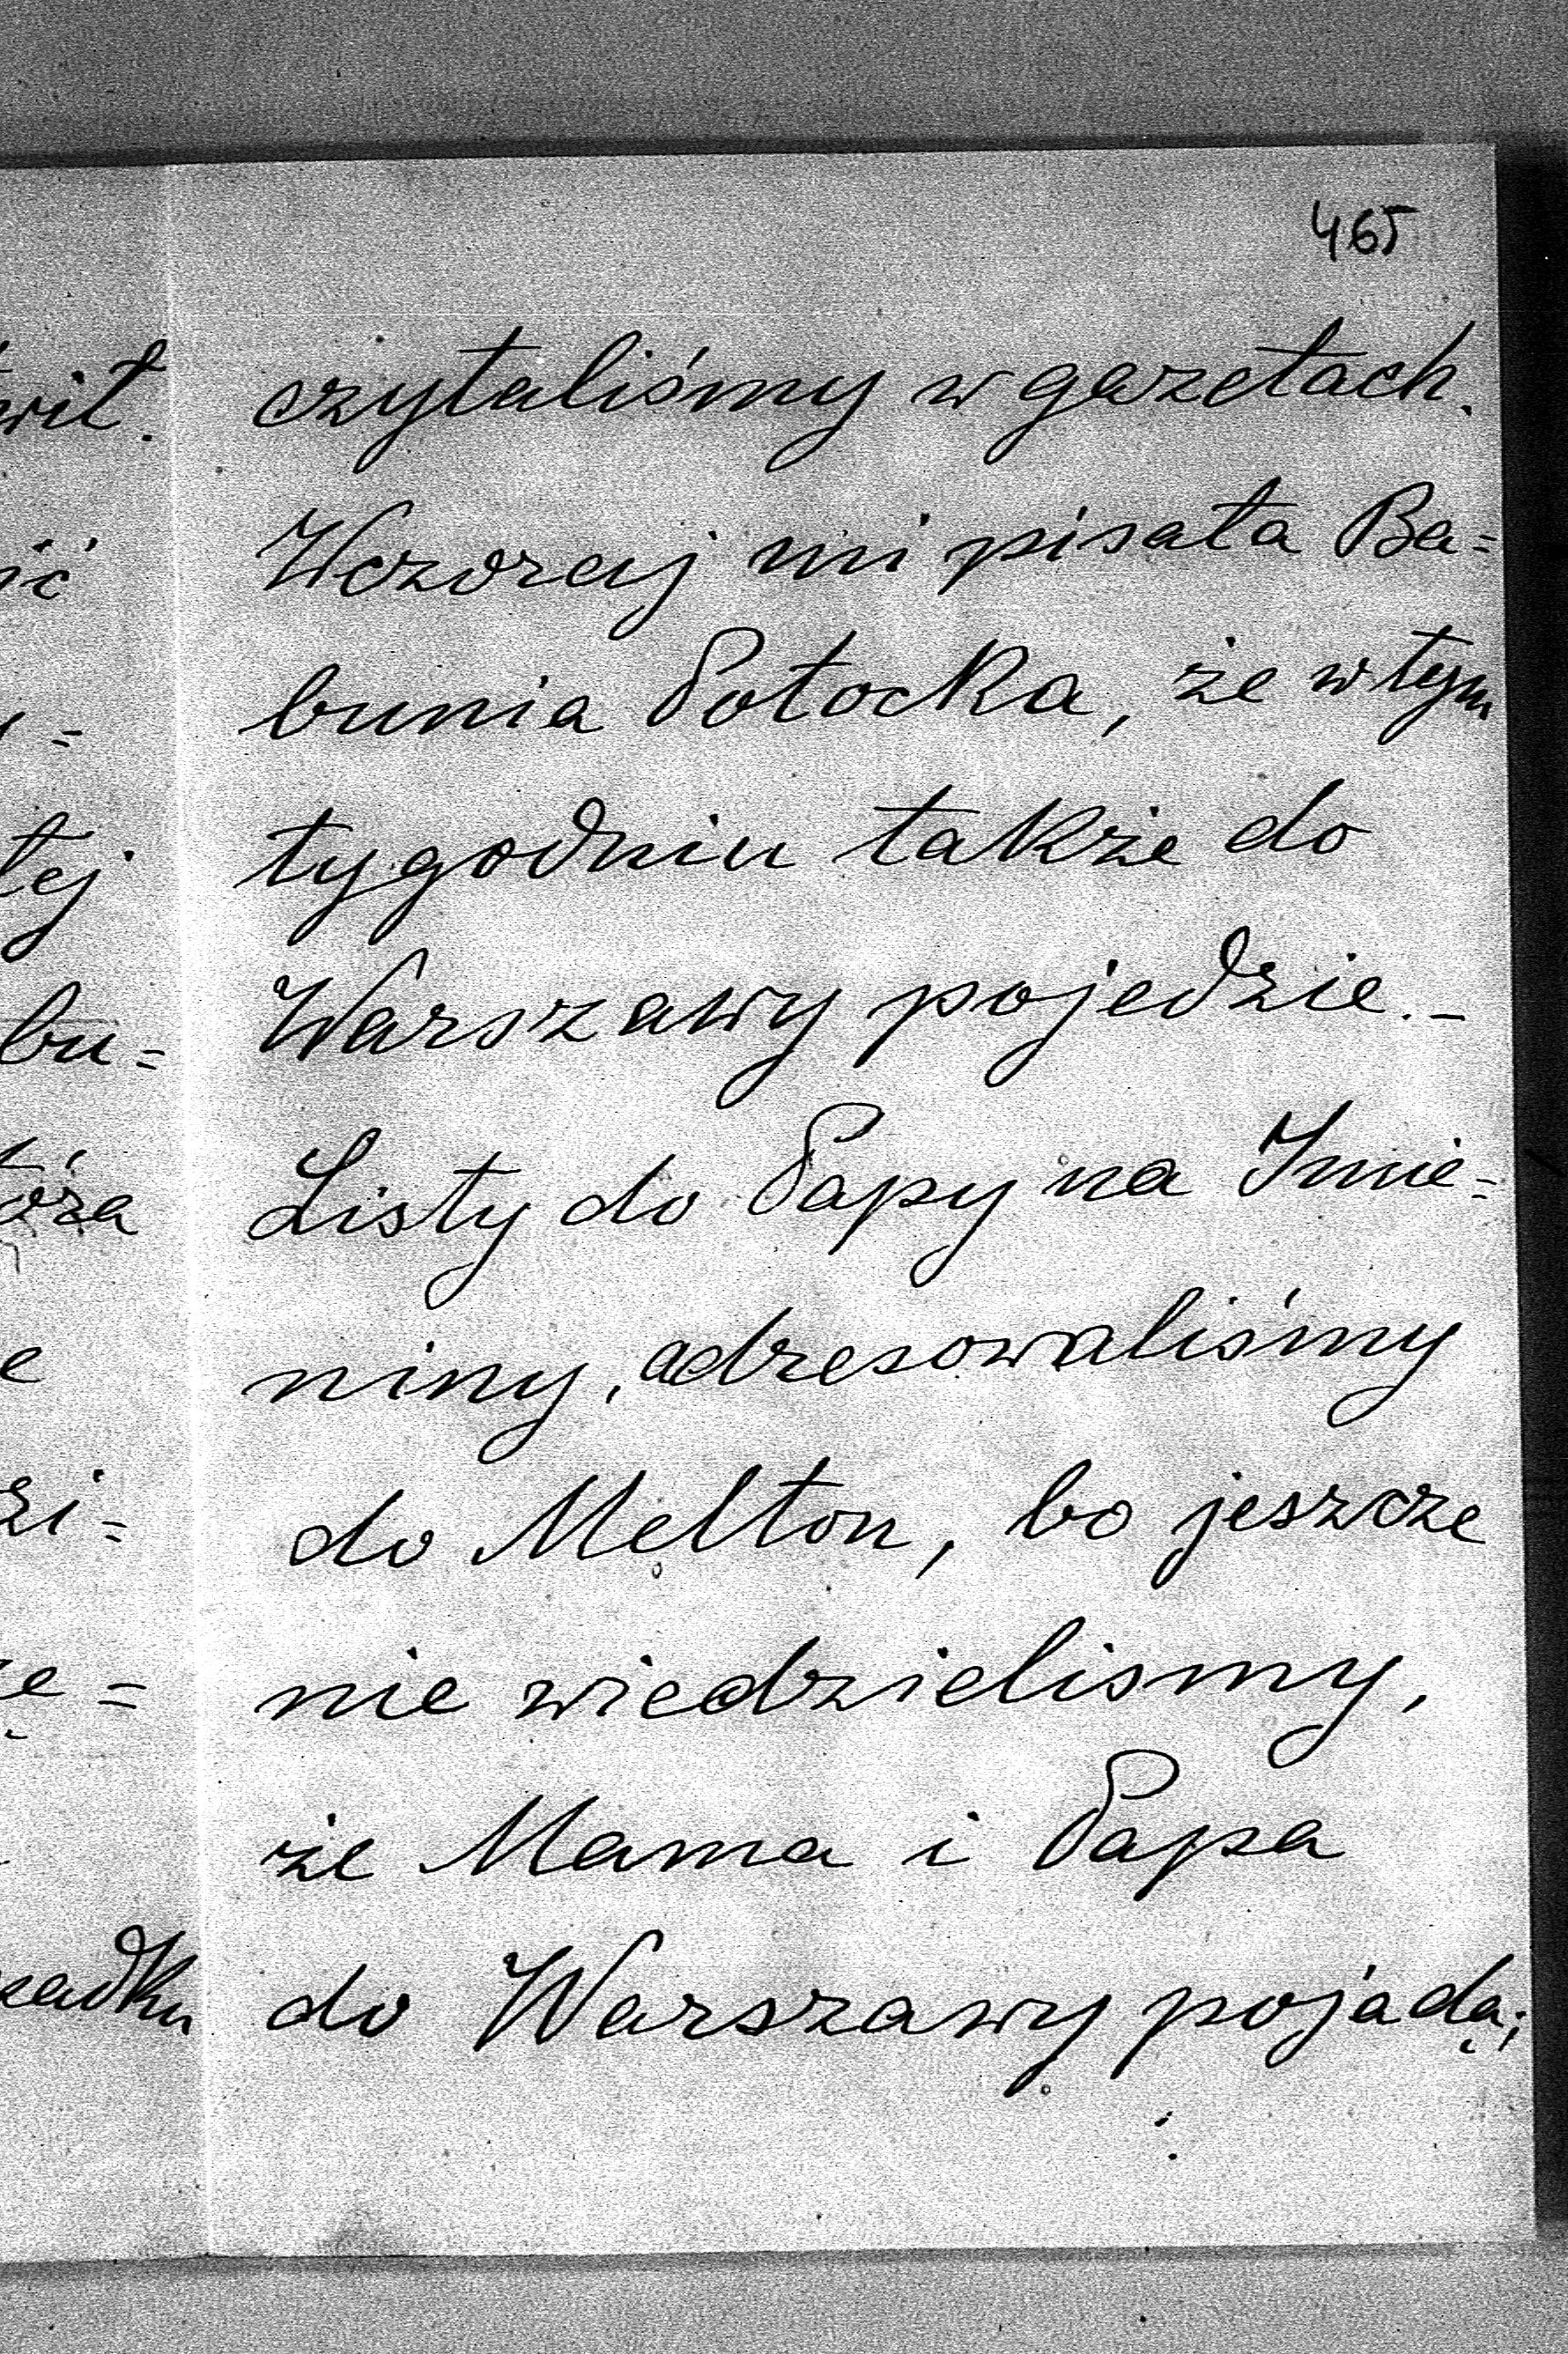 465
czytaliśmy w gazetach.
Wczoraj mi pisała Ba=
bunia Potocka, że w tym
tygodniu także do
Warszawy pojedzie.-
Listy do Papy na Imie=
niny, adresowaliśmy
do Melton, bo jeszcze
nie wiedzielismy,
że Mama i Papa
do Warszawy pojadą;